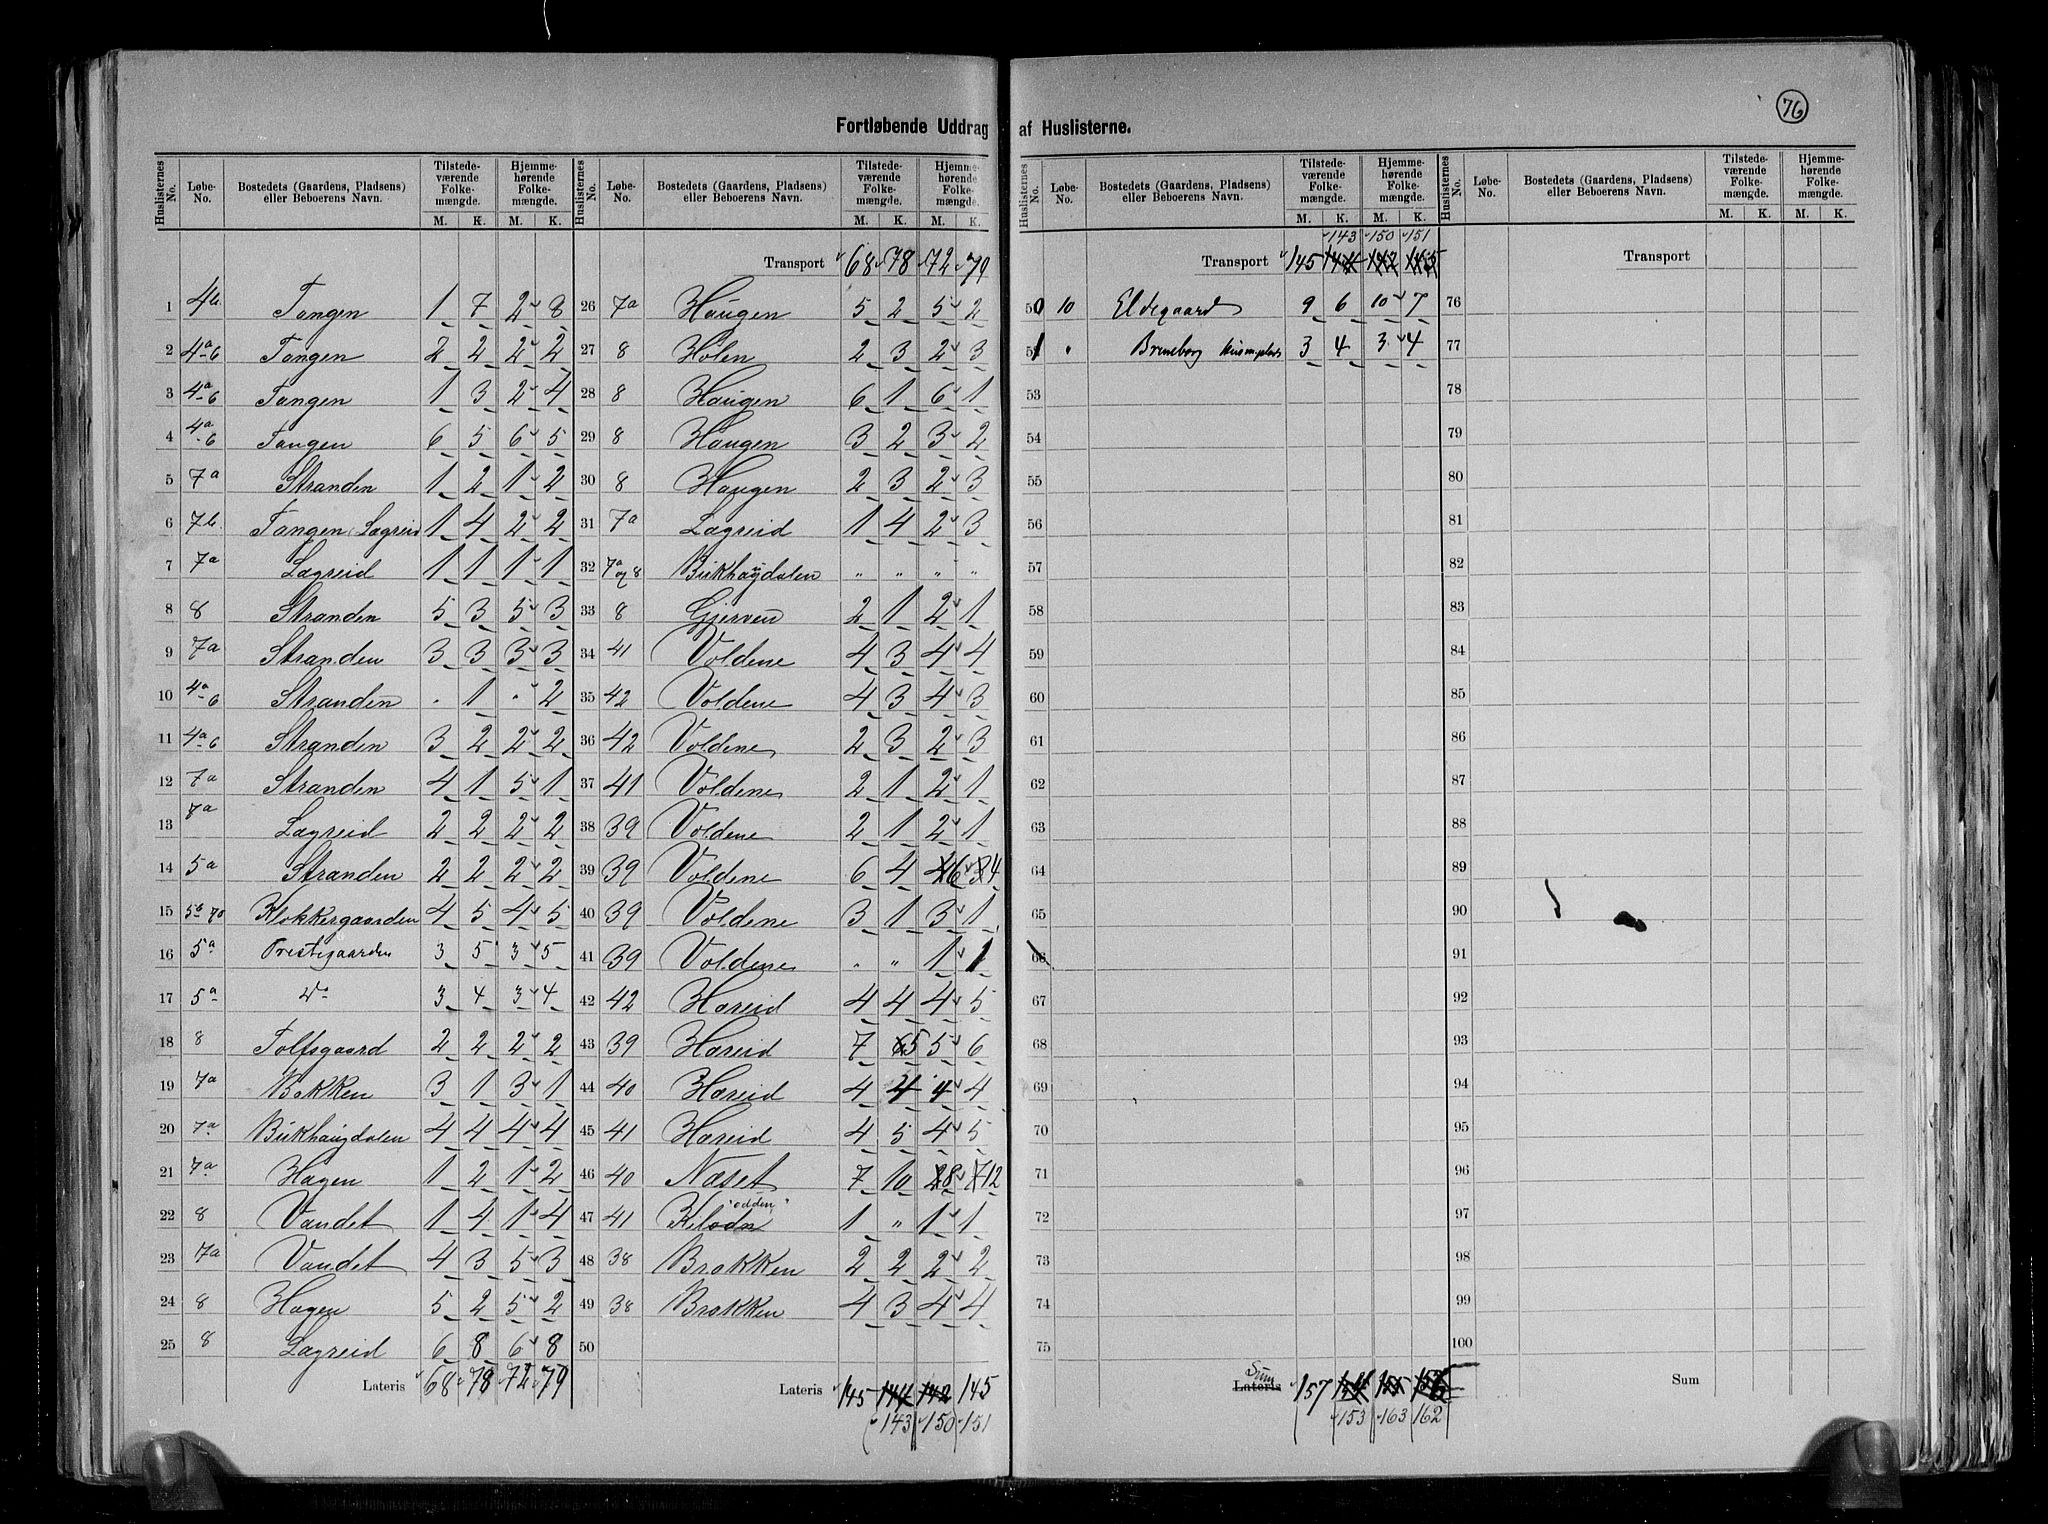 76
Fortløbende Uddrag af Huslisterne.
Huslisternes No. Løbe-No. Bostedets (Gaardens, Pladsens) eller Beboerens Navn. Tilstedeværende Folkemængde. M. K. Hjemmehørende Folkemængde. M. K.
1 4b. Tangen 1 7 2 8
2 4a-6 Tangen 2 2 2 2
3 4a-6 Tangen 1 3 2 4
4 4a-6 Tangen 6 5 6 5
5 7a Stranden 1 2 1 2
6 7b. Tangen, Lægreid 1 4 2 2
7 7a Lægreid 1 1 1 1
8 8 Stranden 5 3 5 3
9 7a Stranden 3 3 3 3
10 4a-6 Stranden . 1 . 2
11 4a-6 Stranden 3 2 2 2
12 7a Stranden 4 1 5 1
13 7a Lægreid 2 2 2 2
14 5a Stranden 2 2 2 2
15 5b 70 Klokkergaarden 4 5 4 5
16 5a Prestegaarden 3 5 3 5
17 5a Do 3 4 3 4
18 8 Tolfsgaard 2 2 2 2
19 7a Bakken 3 1 3 1
20 7a Birkhaugdalen 4 4 4 4
21 7a Hagen 1 2 1 2
22 8 Vandet 1 4 1 4
23 7a Vandet 4 3 5 3
24 8 Hagen 5 2 5 2
25 8 Lægreid 6 8 6 8
Lateris 68 78 72 79
Huslisternes No. Løbe-No. Bostedets (Gaardens, Pladsens) eller Beboerens Navn. Tilstedeværende Folkemængde. M. K. Hjemmehørende Folkemængde. M. K.
Transport 68 78 72 79
26 7a Haugen 5 2 5 2
27 8 Hølen 2 3 2 3
28 8 Haugen 6 1 6 1
29 8 Haugen 3 2 3 2
30 8 Haugen 2 3 2 3
31 7a Lægreid 1 4 2 3
32 7a og 8 Birkhaugdalen " " " "
33 8 Gjerven 2 1 2 1
34 41 Voldene 4 3 4 4
35 42 Voldene 4 3 4 3
36 42 Voldene 2 3 2 3
37 41 Voldene 2 1 2 1
38 39 Voldene 2 1 2 1
39 39 Voldene 6 4 6 4
40 39 Voldene 3 1 3 1
41 39 Voldene " " 1 1
42 42 Hæreid 4 4 4 5
43 39 Hæreid 7 5 5 6
44 40 Hæreid 4 4 4 4
45 41 Hæreid 4 5 4 5
46 40 Næset 7 10 8 12
"odden"
47 41 Kilodn 1 " 1 1
48 38 Brækken 2 2 2 2
49 38 Brækken 4 3 4 4
50
Lateris 145 144 142 145
143 150 151
Huslisternes No. Løbe-No. Bostedets (Gaardens, Pladsens) eller Beboerens Navn. Tilstedeværende Folkemængde. M. K. Hjemmehørende Folkemængde. M. K.
143 150 151
Transport 145 144 142 145
50 10 Eldegaard 9 6 10 7
51 " Breneborg Husmplads 3 4 3 4
53
54
55
56
57
58
59
60
61
62
63
64
65
66
67
68
69
70
71
72
73
74
75
Sum
Lateris 157 156
153 163 162
Huslisternes No. Løbe-No. Bostedets (Gaardens, Pladsens) eller Beboerens Navn. Tilstedeværende Folkemængde. M. K. Hjemmehørende Folkemængde. M. K.
Transport
76
77
78
79
80
81
82
83
84
85
86
87
88
89
90
91
92
93
94
95
96
97
98
99
100
Sum